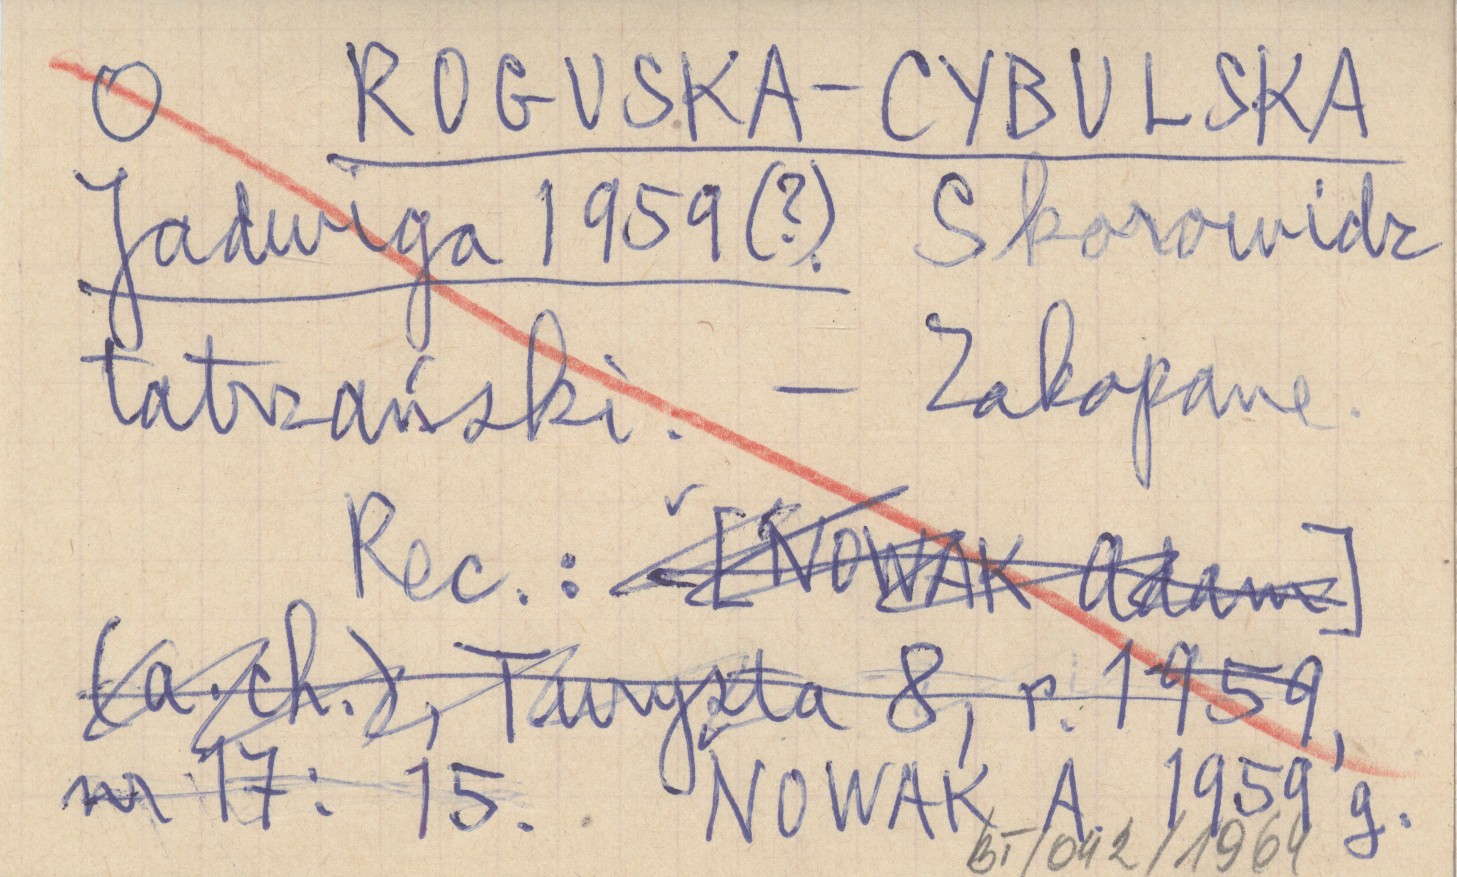 O ROGUSKA-CYBULSKA
Jadwiga 1959 (?) Skorowidz
tatrzański. — Zakopane.
Rec.: [NOWAK Adam]
(a.ch.), Turysta 8, r. 1959,
nr 17: 15. NOWAK A. 1959 g.
BT/042/1964